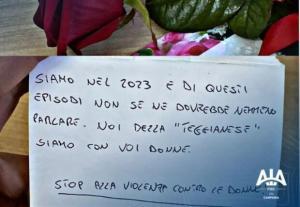 SIAMO NEL 2023 E DI QUESTI
EPISODI NON SE NE DOVREBBE NEMMENO
PARLARE. NOI DELLA "TEGGIANESE"
SIAMO CON VOI DONNE.
STOP ALLA VIOLENZA CONTRO LE DONNE
AIA
CAMPANIA